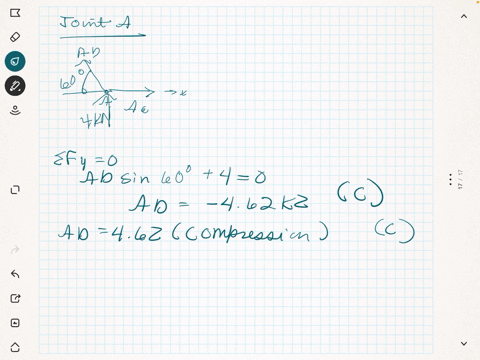 Joint A
AD
60°
→x
A
AC
4kN
ΣFy = 0
AD sin 60° + 4 = 0
AD = -4.62 k2 (C)
AD = 4.62 (Compression) (C)
17 / 17